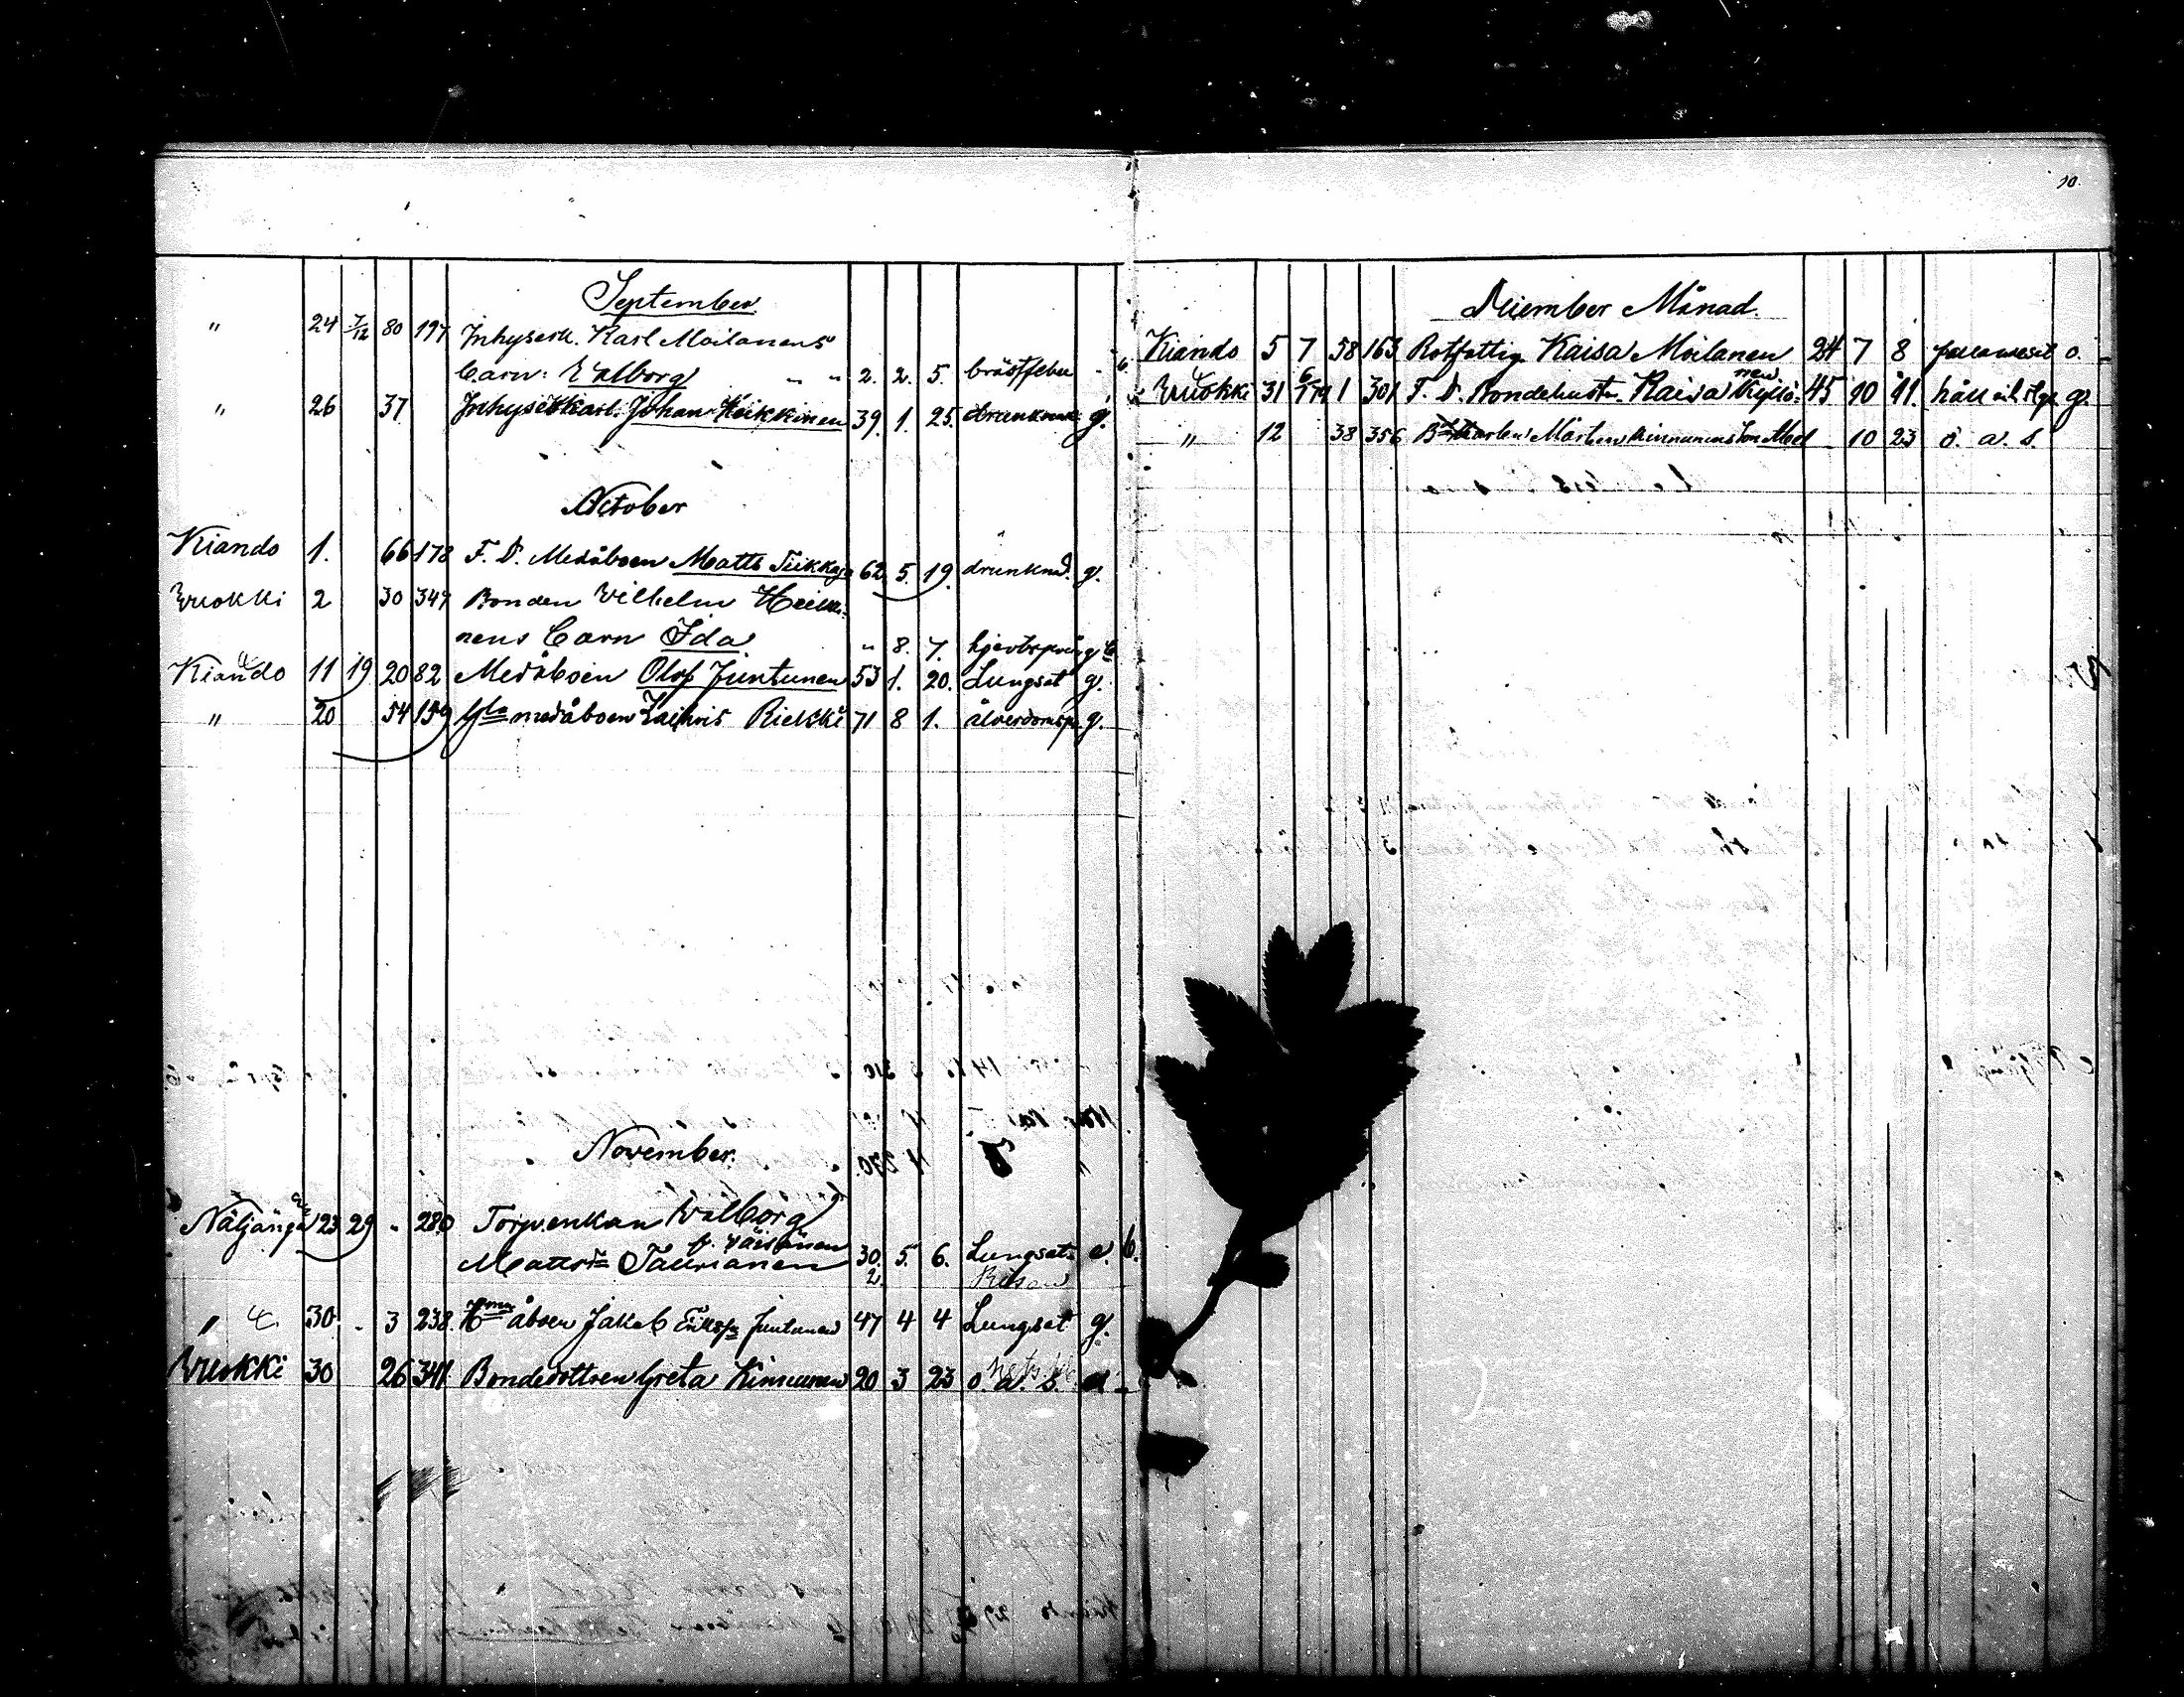 10.
September
" 24 7/12 80 197 Inhysesk. Karl Moilanens
barn: Walborg " " 2. 2. 5. bröstfeber
" 26 37 Inhyseskarl. Johan Heikkinen 39. 1. 25. drunknad g.
October
Kiando 1. 66 178 F. D. Medåboen Matts Tiikkaja 62. 5. 19. drunknad. g.
Wuokki 2 30 347 Bonden Wilhelm Heikki-
nens barn Ida " 8. 7. hjertsprång b
Kiando 11 19 20 82 Medåboen Olof Juntunen 53 1. 20. Lungsot g.
" 20 54 159 medåboen Riekki 71 8 1. ålderdomsb. g.
November.
Näljänga 23 29 " 280 Torp.enkan Walborg
Mattsdr Tauriainen f. Väisänen 30. 5. 6. Lungsot. e b.
2.
" 30 - 3 238. åboen Jakob Eriksson Juntunen 47 4 4 Lungsot g.
Wuokki 30 26 341 Bondedottren Greta Kinnunen 20 3 23 o. a. s. o -
December Månad.
Kiando 5 7 58 163 Rotfattig. Kaisa Moilanen 24 7 8 o. -
Wuokki 31 1 301 F. D. Bondehustr. Kaisa Kyllö-
nen 45 10 11. håll och styng g.
" 12 38 356 Mårten Kinnunens son 10 23 o. a. s.